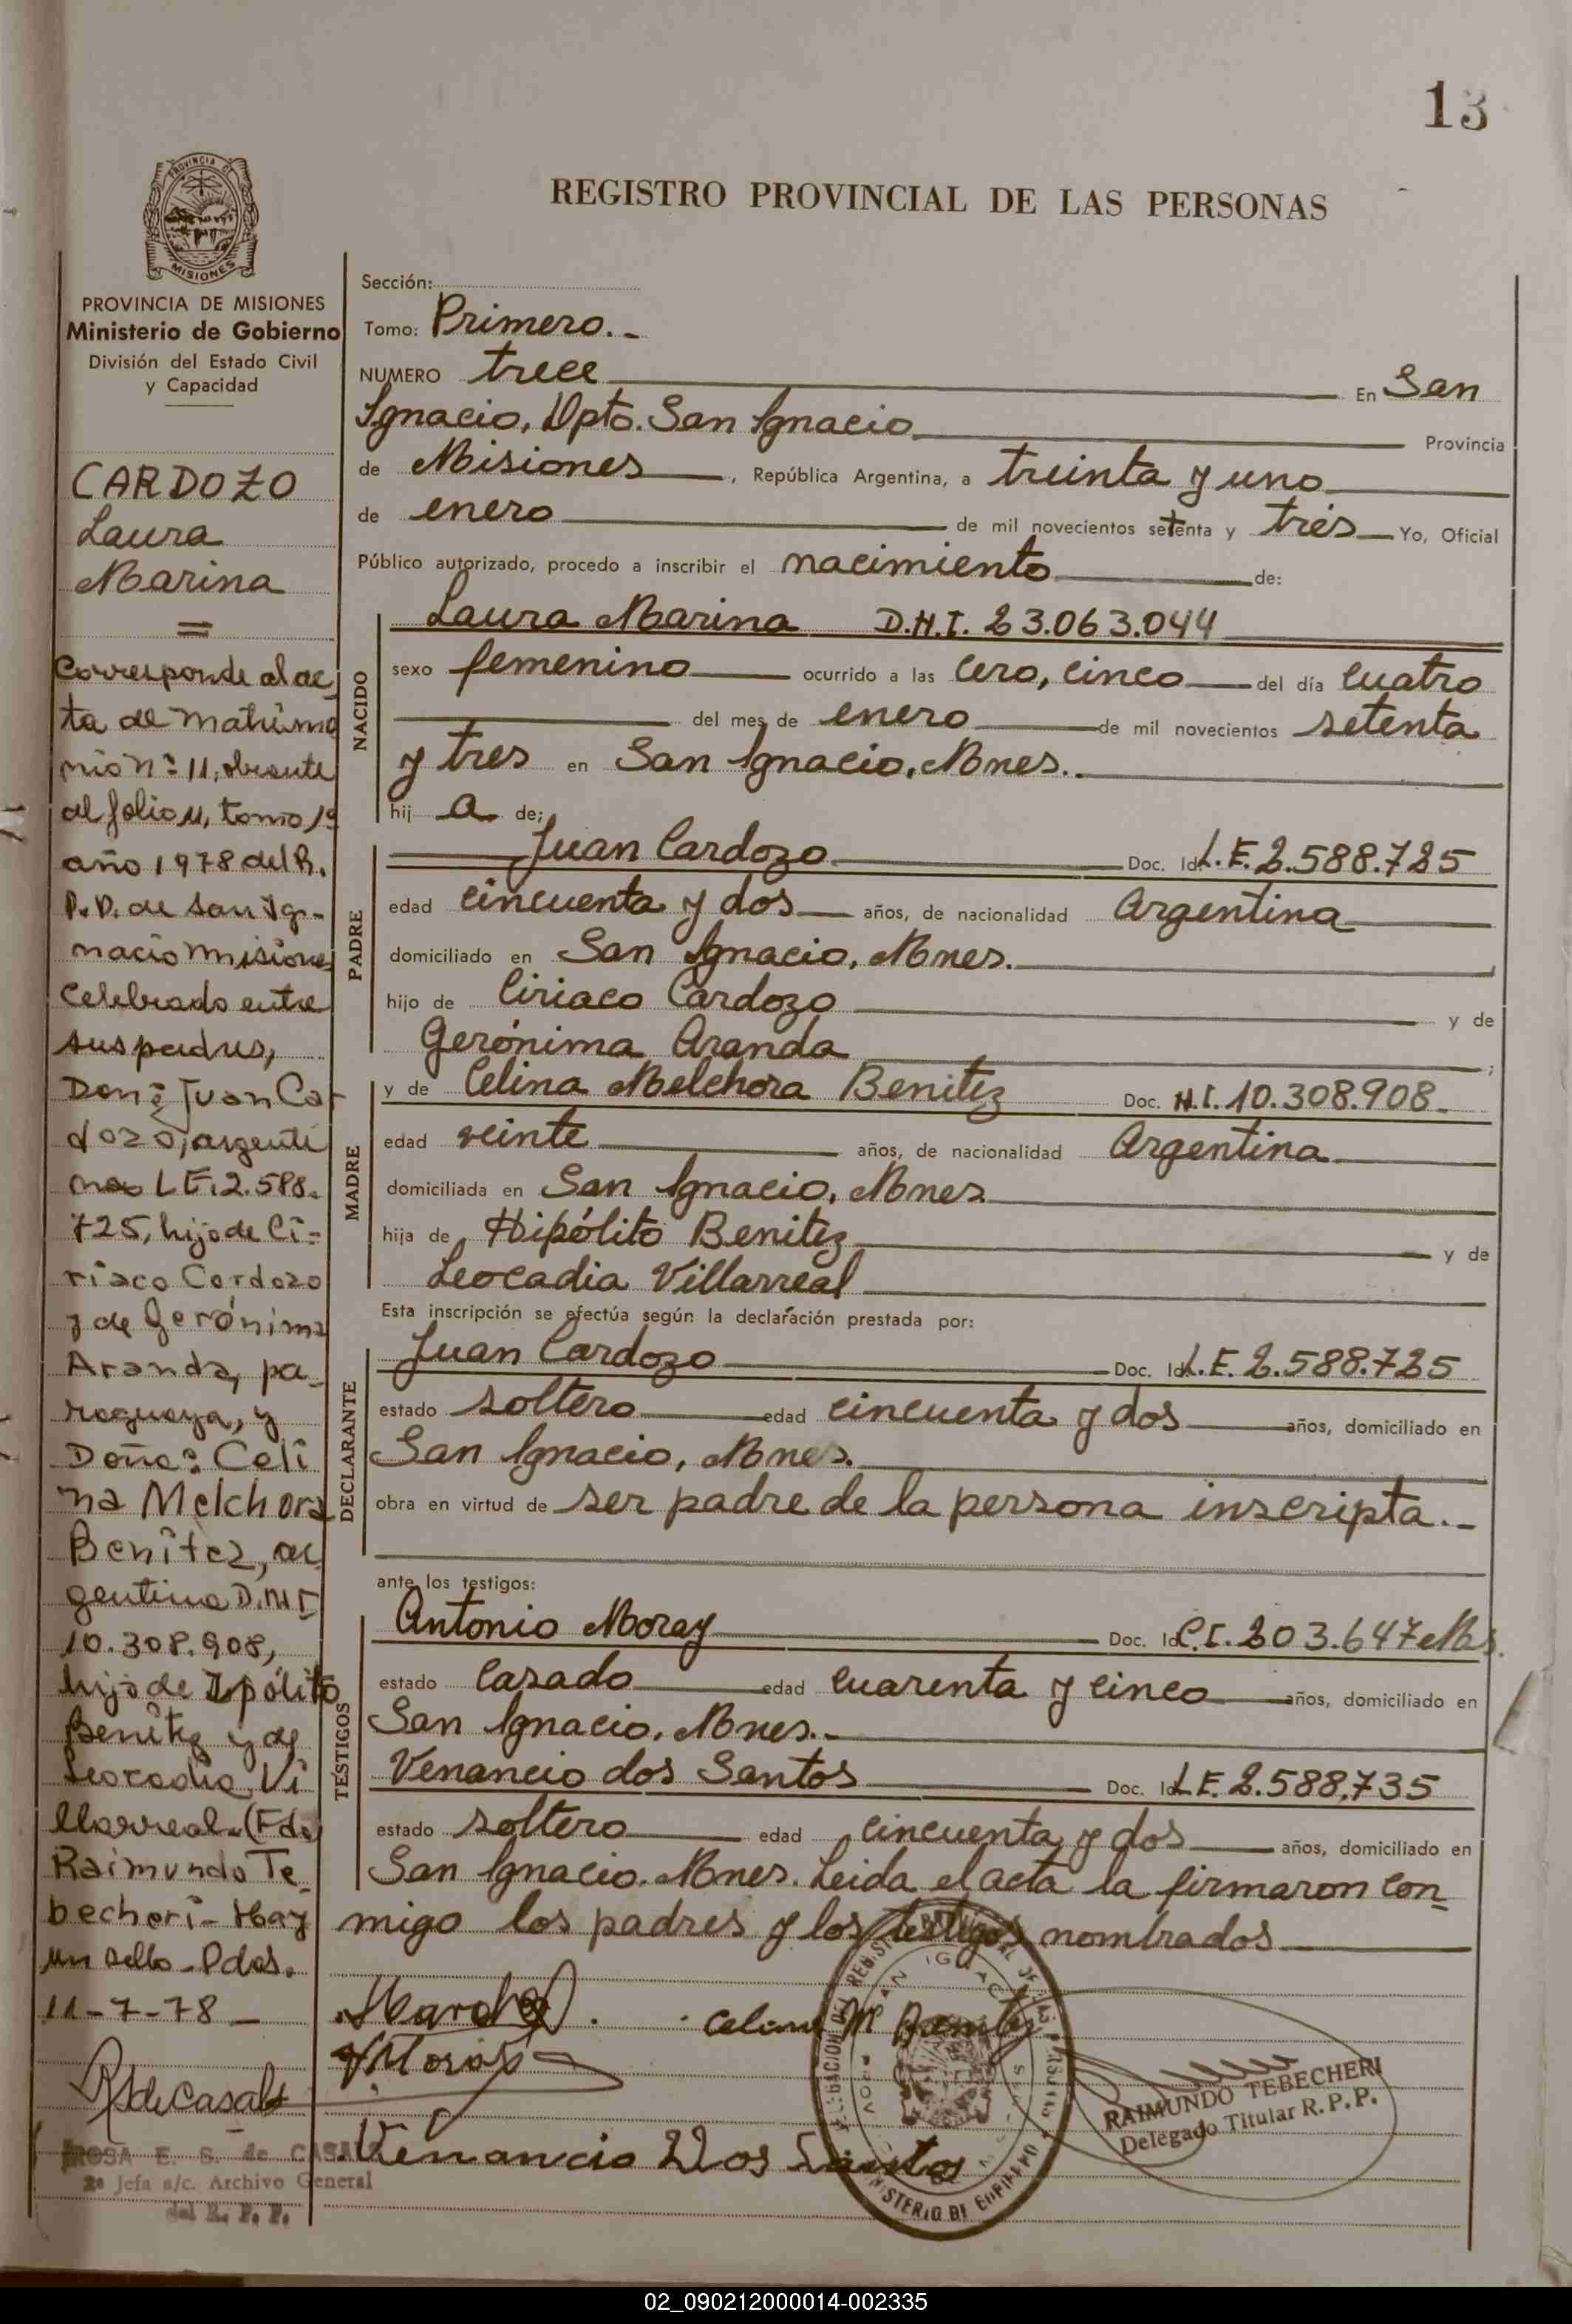 13
REGISTRO PROVINCIAL DE LAS PERSONAS
PROVINCIA DE
MISIONES
PROVINCIA DE MISIONES
Ministerio de Gobierno
División del Estado Civil
y Capacidad
CARDOZO
Laura
Marina
=
Corresponde al ac-
ta de matrimo
nio nº 11, obrante
al folio 11, tomo 1º
año 1978 del R.
P.P. de San Ig-
nacio Misiones
Celebrado entre
sus padres,
Don: Juan Car
dozo, argenti
no L E: 2.588.
725, hijo de Ci-
riaco Cardozo
y de Gerónima
Aranda, pa-
raguaya, y
Doña: Celi
na Melchora
Benítez, ar
gentina D.N.I
10.308.908,
hija de Ipólito
Benítez y de
Leocadia Vi
llarreal. (Fdo)
Raimundo Te-
becheri - Hay
un sello - Pdas.
11-7-78 -
R S de Casals
ROSA E. S. de CASALS
2a Jefa a/c. Archivo General
del R. P. P.
Sección:
Tomo: Primero.-
NUMERO trece En San
Ignacio, Dpto. San Ignacio Provincia
de Misiones, República Argentina, a treinta y uno
de enero de mil novecientos setenta y trés Yo, Oficial
Público autorizado, procedo a inscribir el nacimiento de:
NACIDO
Laura Marina D.N.I. 23.063.044
sexo femenino ocurrido a las cero, cinco del día cuatro
del mes de enero de mil novecientos setenta
y tres en San Ignacio, Mnes.
hij a de:
PADRE
Juan Cardozo Doc. Id. L.E. 2.588.725
edad cincuenta y dos años, de nacionalidad Argentina
domiciliado en San Ignacio, Mnes.
hijo de Ciriaco Cardozo y de
Gerónima Aranda ;
MADRE
y de Celina Melchora Benitez Doc. N.I. 10.308.908.
edad veinte años, de nacionalidad Argentina
domiciliada en San Ignacio, Mnes
hija de Hipólito Benitez y de
Leocadia Villarreal
Esta inscripción se efectúa según la declaración prestada por:
DECLARANTE
Juan Cardozo Doc. Id. L.E. 2.588.725
estado soltero edad cincuenta y dos años, domiciliado en
San Ignacio, Mnes.
obra en virtud de ser padre de la persona inscripta.-
ante los testigos:
TESTIGOS
Antonio Moray Doc. Id. C.I. 203.647 Mns.
estado casado edad cuarenta y cinco años, domiciliado en
San Ignacio, Mnes.-
Venancio dos Santos Doc. Id. L.E. 2.588.735
estado soltero edad cincuenta y dos años, domiciliado en
San Ignacio. Mnes. Leida el acta la firmaron con-
migo los padres y los testigos nombrados
Celina M Benitez
Venancio Dos Santos
SAN IGNACIO
MINISTERIO DE GOBIERNO
RAIMUNDO TEBECHERI
Delegado Titular R. P. P.
02_090212000014-002335